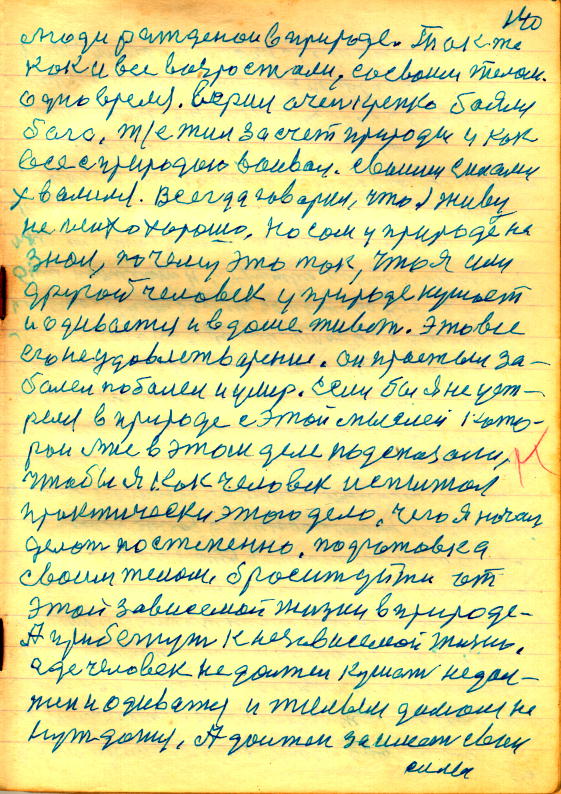 140
люди рожденои в природе. Так же
как и все возростали, со своим телом.
одно время. верил очен крепко баялся
бога, т/е жил за счет природы и как
все с природою воивал. своими силами
хвалился. Всегда говарил, что я живу
не плихо хорошо, но сам у природе не
знал, почему это так, что я или
другой человек у природе кушает
и одивается и в доме живет. Это все
его неудовлетварение. он простыл за-
балел поболел и умер. если бы я не уст-
релся в природе с этой мыслей кото-
рои мне в этом деле подсказали,
чтобы я как человек испытал
практически этого дело, чего я начал
делат постепенно, подготовка
своим телом, бросит уйти от
этой зависемой жизни в природе-
А прибегнут к незовисемой жизни,
где человек не должен кушат не дол-
жен одиватся и жилым домом не
нуждатся, А должен занимат свои
силы